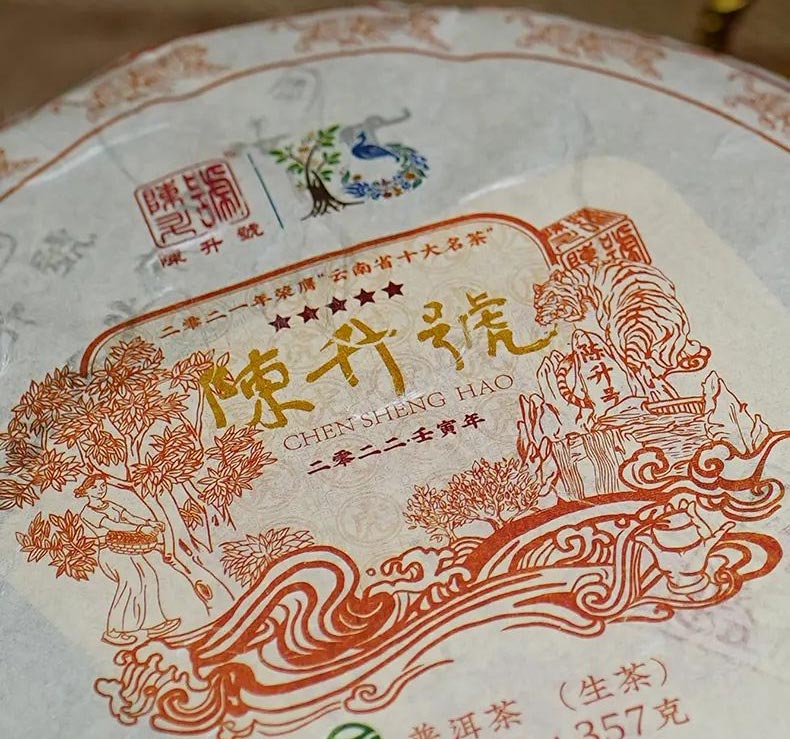 陳升號
陳升號
二零二一年荣膺“云南省十大名茶”
陳升號
CHEN SHENG HAO
二零二二·壬寅年
陈升号
普洱茶（生茶）
357克